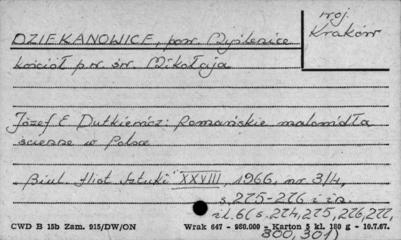 woj.
Kraków
DZIEKANOWICE, pow. Myślenice
kościół p.w. św. Mikołaja
Józef E Dutkiewicz: Romańskie malowidła
ścienne w Polsce
Biul. Hist. Sztuki XXVIII, 1966, nr 3/4,
s. 275-276 i in.
il. 6 (s. 274, 275, 276, 277,
300, 301)
CWD B 15b Zam. 915/DW/ON Wrak 647 - 950.000 - Karton 5 kl. 180 g - 10.7.67.